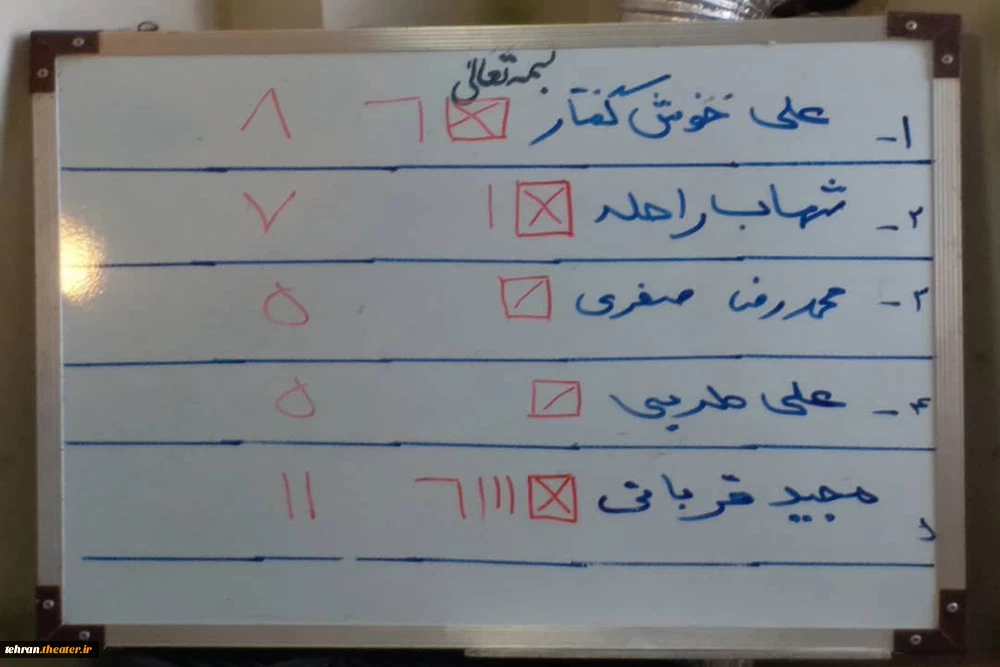 بسمه تعالی
۱- علی خوش گفتار ۸
۲- شهاب راحله ۷
۳- محمدرضا صفری ۵
۴- علی طربی ۵
۵ مجید قربانی ۱۱
tehran.theater.ir